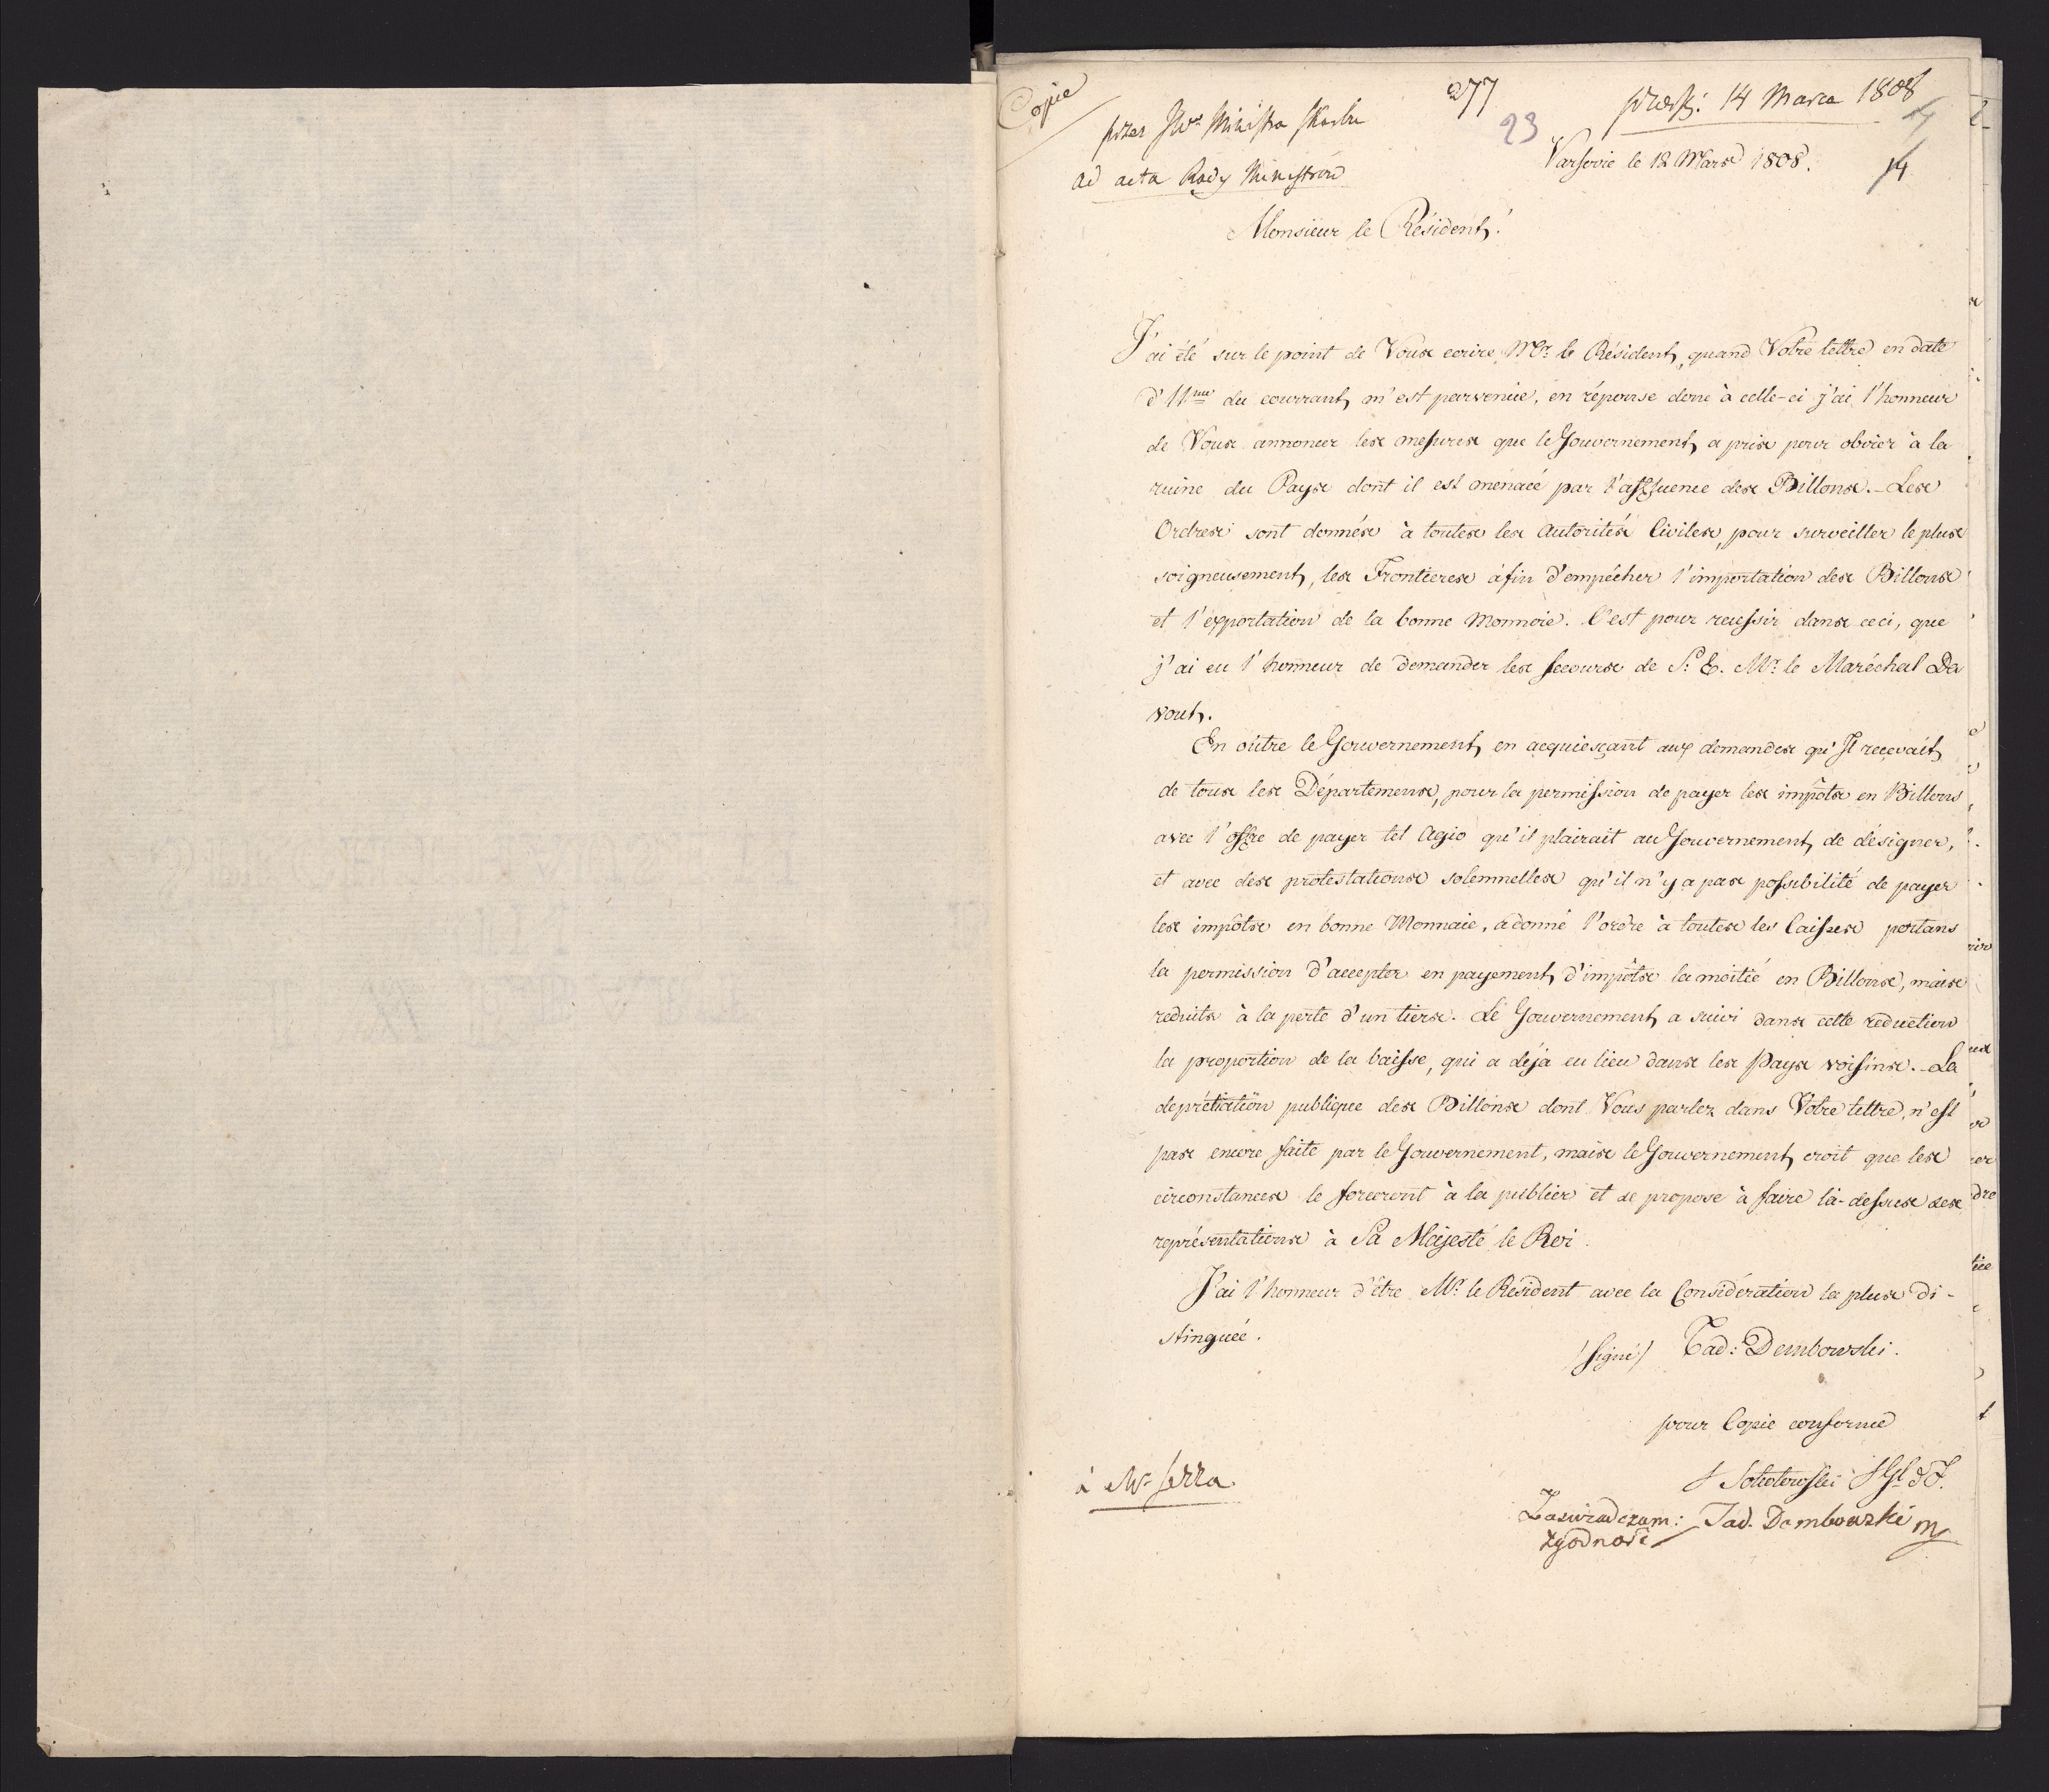 Copie
277
23
14 Marca 1808
przez JW° Ministra Skarbu
Varsovie le 12 Mars 1808.
14
ad acta Rady Ministrów
Monsieur le Résident!
J'ai été sur le point de Vous ecrire, Mr. le Résident, quand Votre lettre en date
d'11me du courrant, m'est parvenue, en réponse donc à celle-ci j'ai l'honneur
de Vous annoncer les mesures que le Gouvernement, a pris pour obvier à la
ruine du Pays dont il est menacé par l'affluence des Billons. - Les
Ordres sont donnés à toutes les Autorités Civiles, pour surveiller le plus
soigneusement, les Frontieres àfin d'empécher l'importation des Billons
et l'exportation de la bonne Monnoie. C'est pour reussir dans ceci, que
j'ai eu l'honneur de demander les secours de S. E. Mr. le Maréchal Da
vout.
En oûtre le Gouvernement, en acquiesçant aux demandes qu'Il recevait,
de tous les Départemens, pour la permission de payer les impôts en Billons
avec l'offre de payer tel Agio qu'il plairait au Gouvernement, de désigner,
et avec des protestations solemnelles qu'il n'y a pas possibilité de payer
les impôts en bonne Monnaie, a donné l'ordre à toutes les Caisses portans
la permission d'accepter en payement, d'impôts la moitié en Billons, mais
reduits à la perte d'un tiers. Le Gouvernement, a suivi dans cette reduction
la proportion de la baisse, qui a déja eu lieu dans les Pays voisins. - La
deprétiation publique des Billons dont Vous parlez dans Votre lettre, n'est
pas encore faite par le Gouvernement, mais le Gouvernement, croit que les
circonstances le forceront à la publier et se propose à faire là-dessus ses
représentations à Sa Majesté le Roi.
J'ai l'honneur d'être Mr. le Resident avec la Considération la plus di-
stinguée.
/signé/ Tad: Dembowski.
pour Copie conforme
à Mr Serra
Sokołowski
Zaświadczam: Tad. Dembowski
zgodność